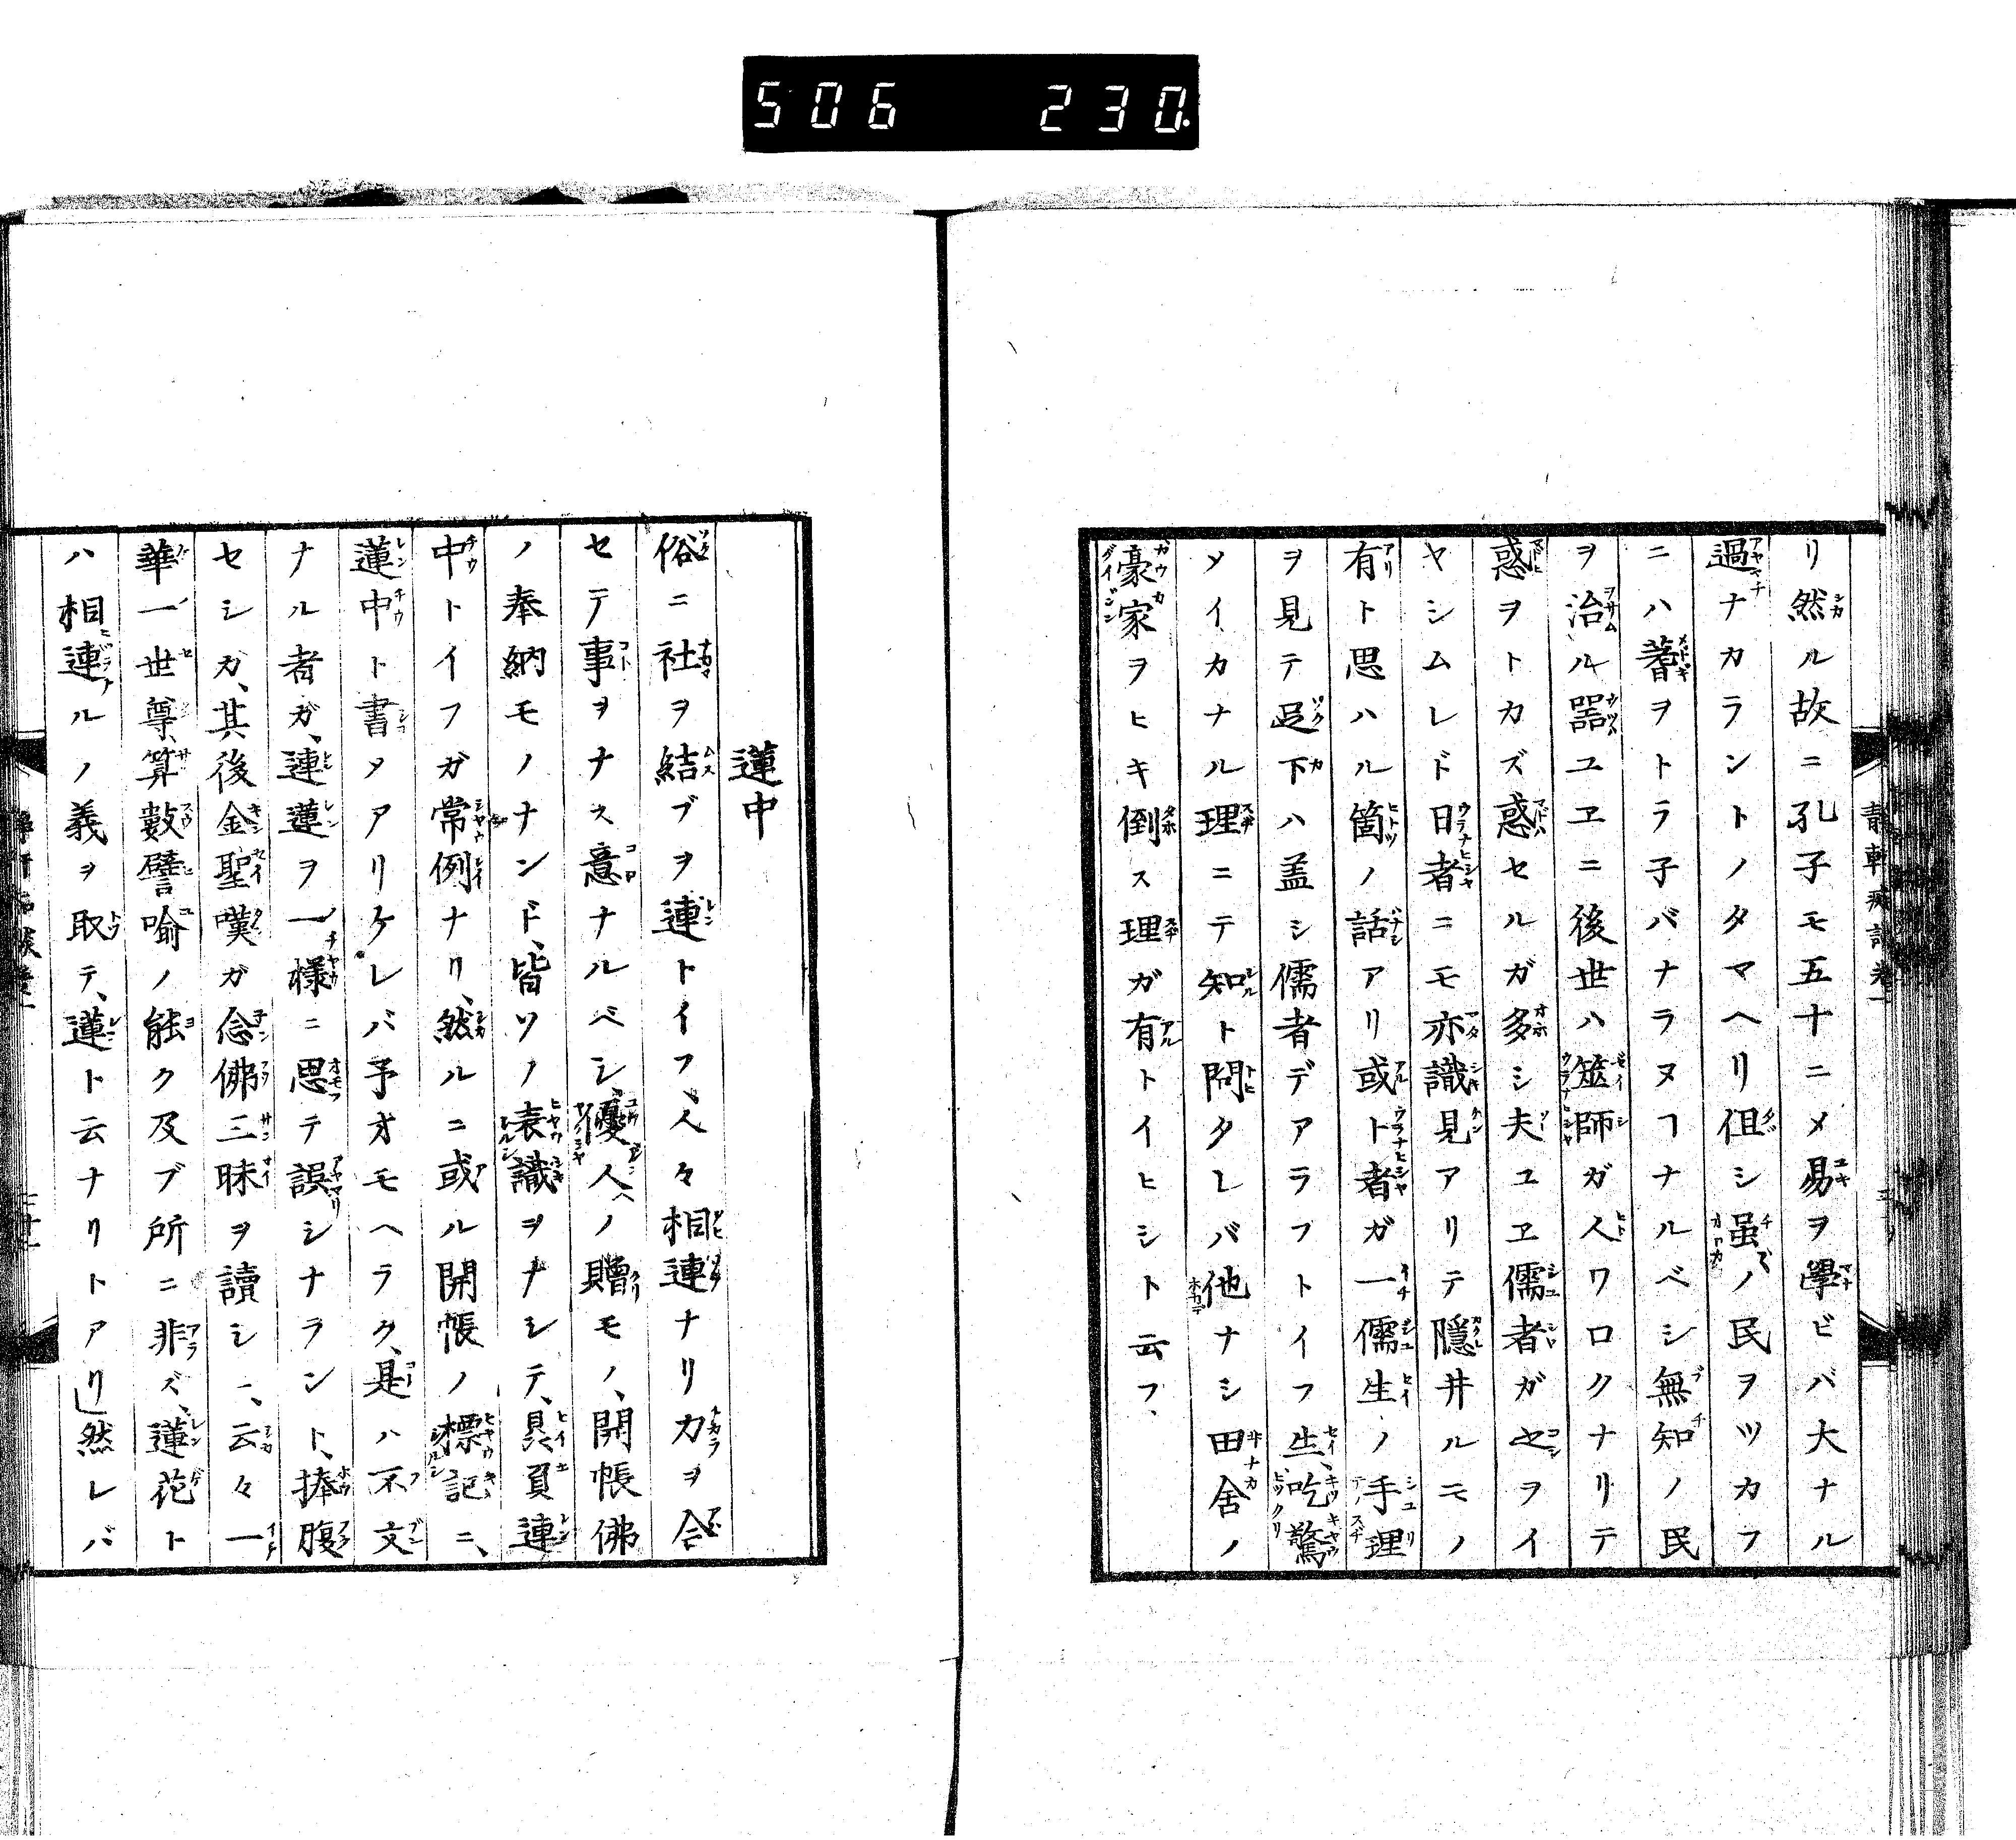 506 230
リ然ル故ニ孔子モ五十ニメ易ヲ學ビバ大ナル
過ナカラントノタマヘリ但シ蚩ノ民ヲツカフ
ニハ蓍ヲトラ子バナラヌヿナルベシ無知ノ民
ヲ治ル器ユヱニ後世ハ筮師ガ人ワロクナリテ
惑ヲトカズ惑セルガ多シ夫ユヱ儒者ガヤヲイ
ヤシムレド日者ニモ亦識見アリテ隱井ルモノ
有ト思ハル箇ノ話アリ或ト者ガ一儒生ノ手理
ヲ見テ足下ハ盖シ儒者デアラフトイフ生、吃驚
メイカナル理ニテ知ト問タレバ他ナシ田舍ノ
豪家ヲヒキ倒ス理ガ有トイヒシト云フ、
蓮中
俗ニ社ヲ結ブヲ連トイフ、人々相連ナリカヲ合
セテ事ヲナス意ナルベシ、優人ヘノ贈モノ、開帳佛
ノ奉納モノナンド、皆ソノ表識ヲナシテ、具負連
中トイフガ常例ナリ、然ルニ或ル開帳ノ標記ニ、
蓮中ト書タアリケレバ予オモヘラク、是ハ不文
ナル者ガ、連蓮ヲ一樣ニ思テ誤シナラント、捧腹
セシガ、其後金聖嘆ガ念佛三昧ヲ讀シニ、云々一
華一世尊、算數譬喻ノ能ク及ブ所ニ非ズ、蓮花ト
ハ相連ルノ義ヲ取テ、蓮ト云ナリトアリ」然レバ